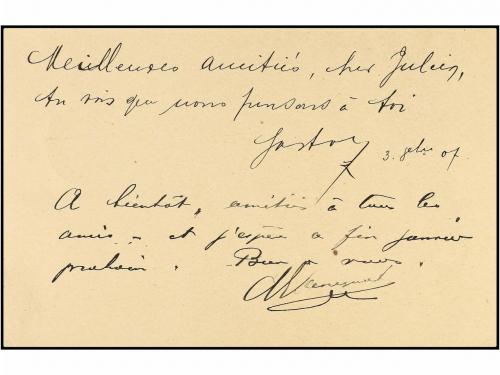 Meilleures amitiés, cher Julien,
tu vois que nous pensons à toi
Gaston
3. 9bre 07.
A bientôt, amitiés à tous les
amis, et j'espère a fin janvier
prochain. Bien a vous.